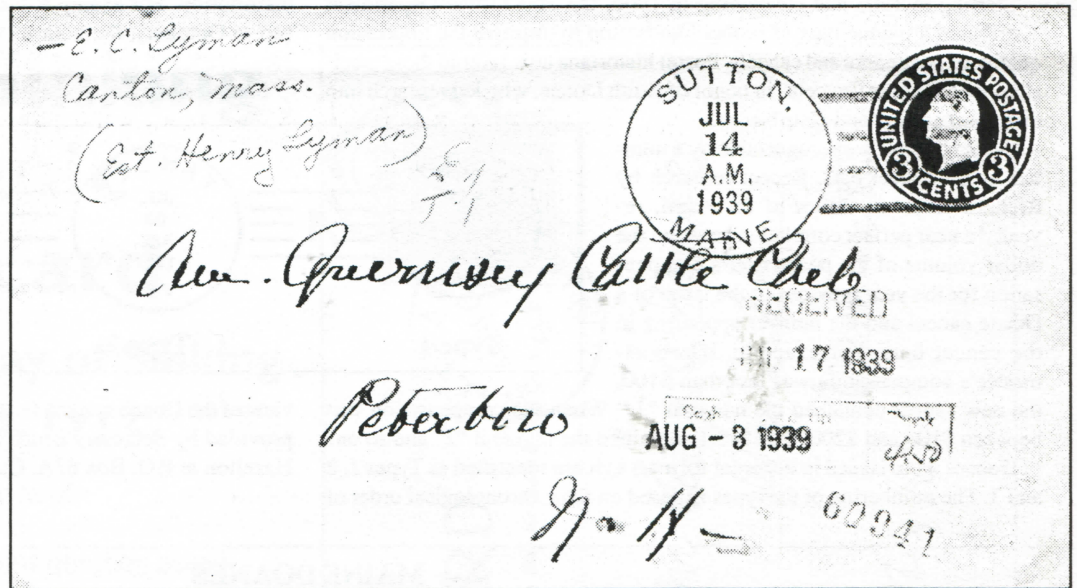 - E. C. Lyman
Canton, Mass.
(Est. Henry Lyman)
SUTTON,
JUL
14
A.M.
1939
MAINE
UNITED STATES POSTAGE
3 CENTS 3
Am. Guernsey Cattle Club
RECEIVED
JUL 17 1939
Peterboro
AUG - 3 1939
N. H.
60941